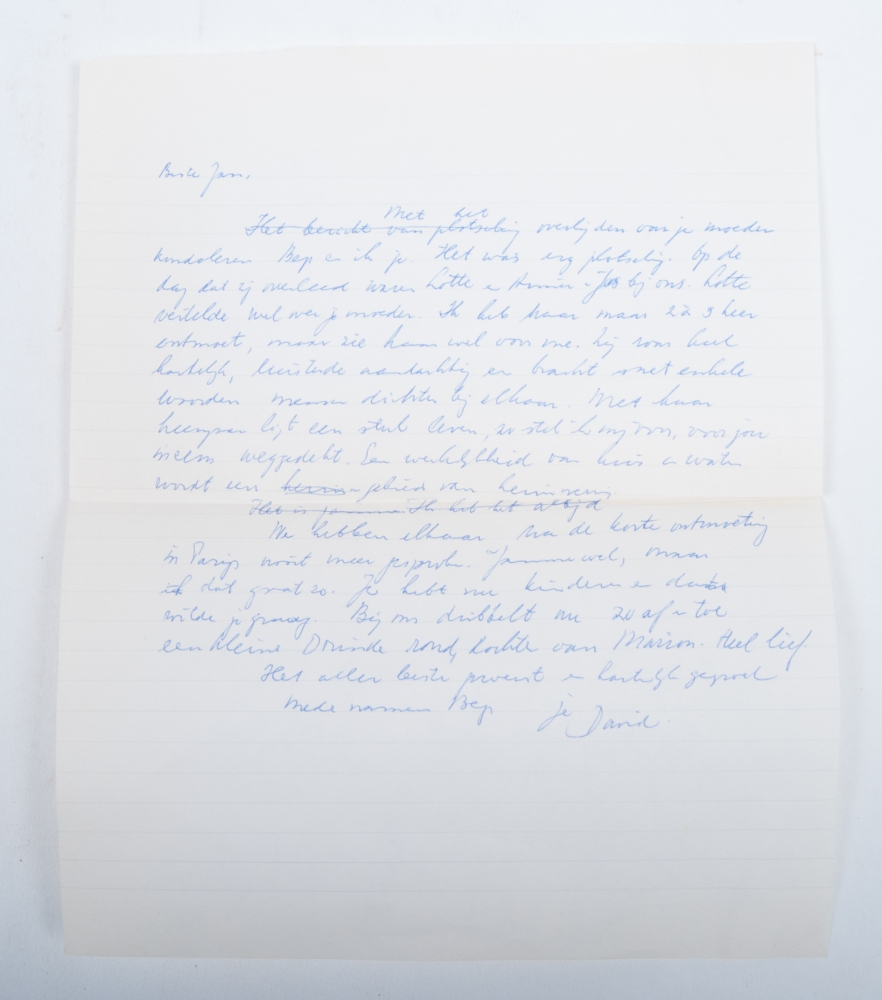 Beste Jan,
Met het
Het bericht van plotseling overlijden van je moeder
kondoleren Bep en ik je. Het was erg plotseling. Op de
dag dat zij overleed waren Lotte en bij ons. Lotte
vertelde wel over je moeder. Ik heb haar maar 2 à 3 keer
ontmoet, maar zie haar wel voor me. Zij was heel
hartelijk, luisterde aandachtig en bracht met enkele
woorden mensen dichter bij elkaar. Met haar
heengaan ligt een stuk leven, zo stel ik mij voor, voor jou
ineens weggedekt. Een werkelijkheid van huis en water
wordt een gebied van herinnering
Het is jammer Ik heb het altijd
We hebben elkaar na de korte ontmoeting
in Parijs nooit meer gesproken. Jammer wel, maar
ik dat gaat zo. Je hebt nu kinderen en
wilde je graag. Bij ons dribbelt nu zo af en toe
een kleine rond, dochter van . Heel lief.
Het aller beste gewenst en hartelijk gegroet
mede namens Bep je David.